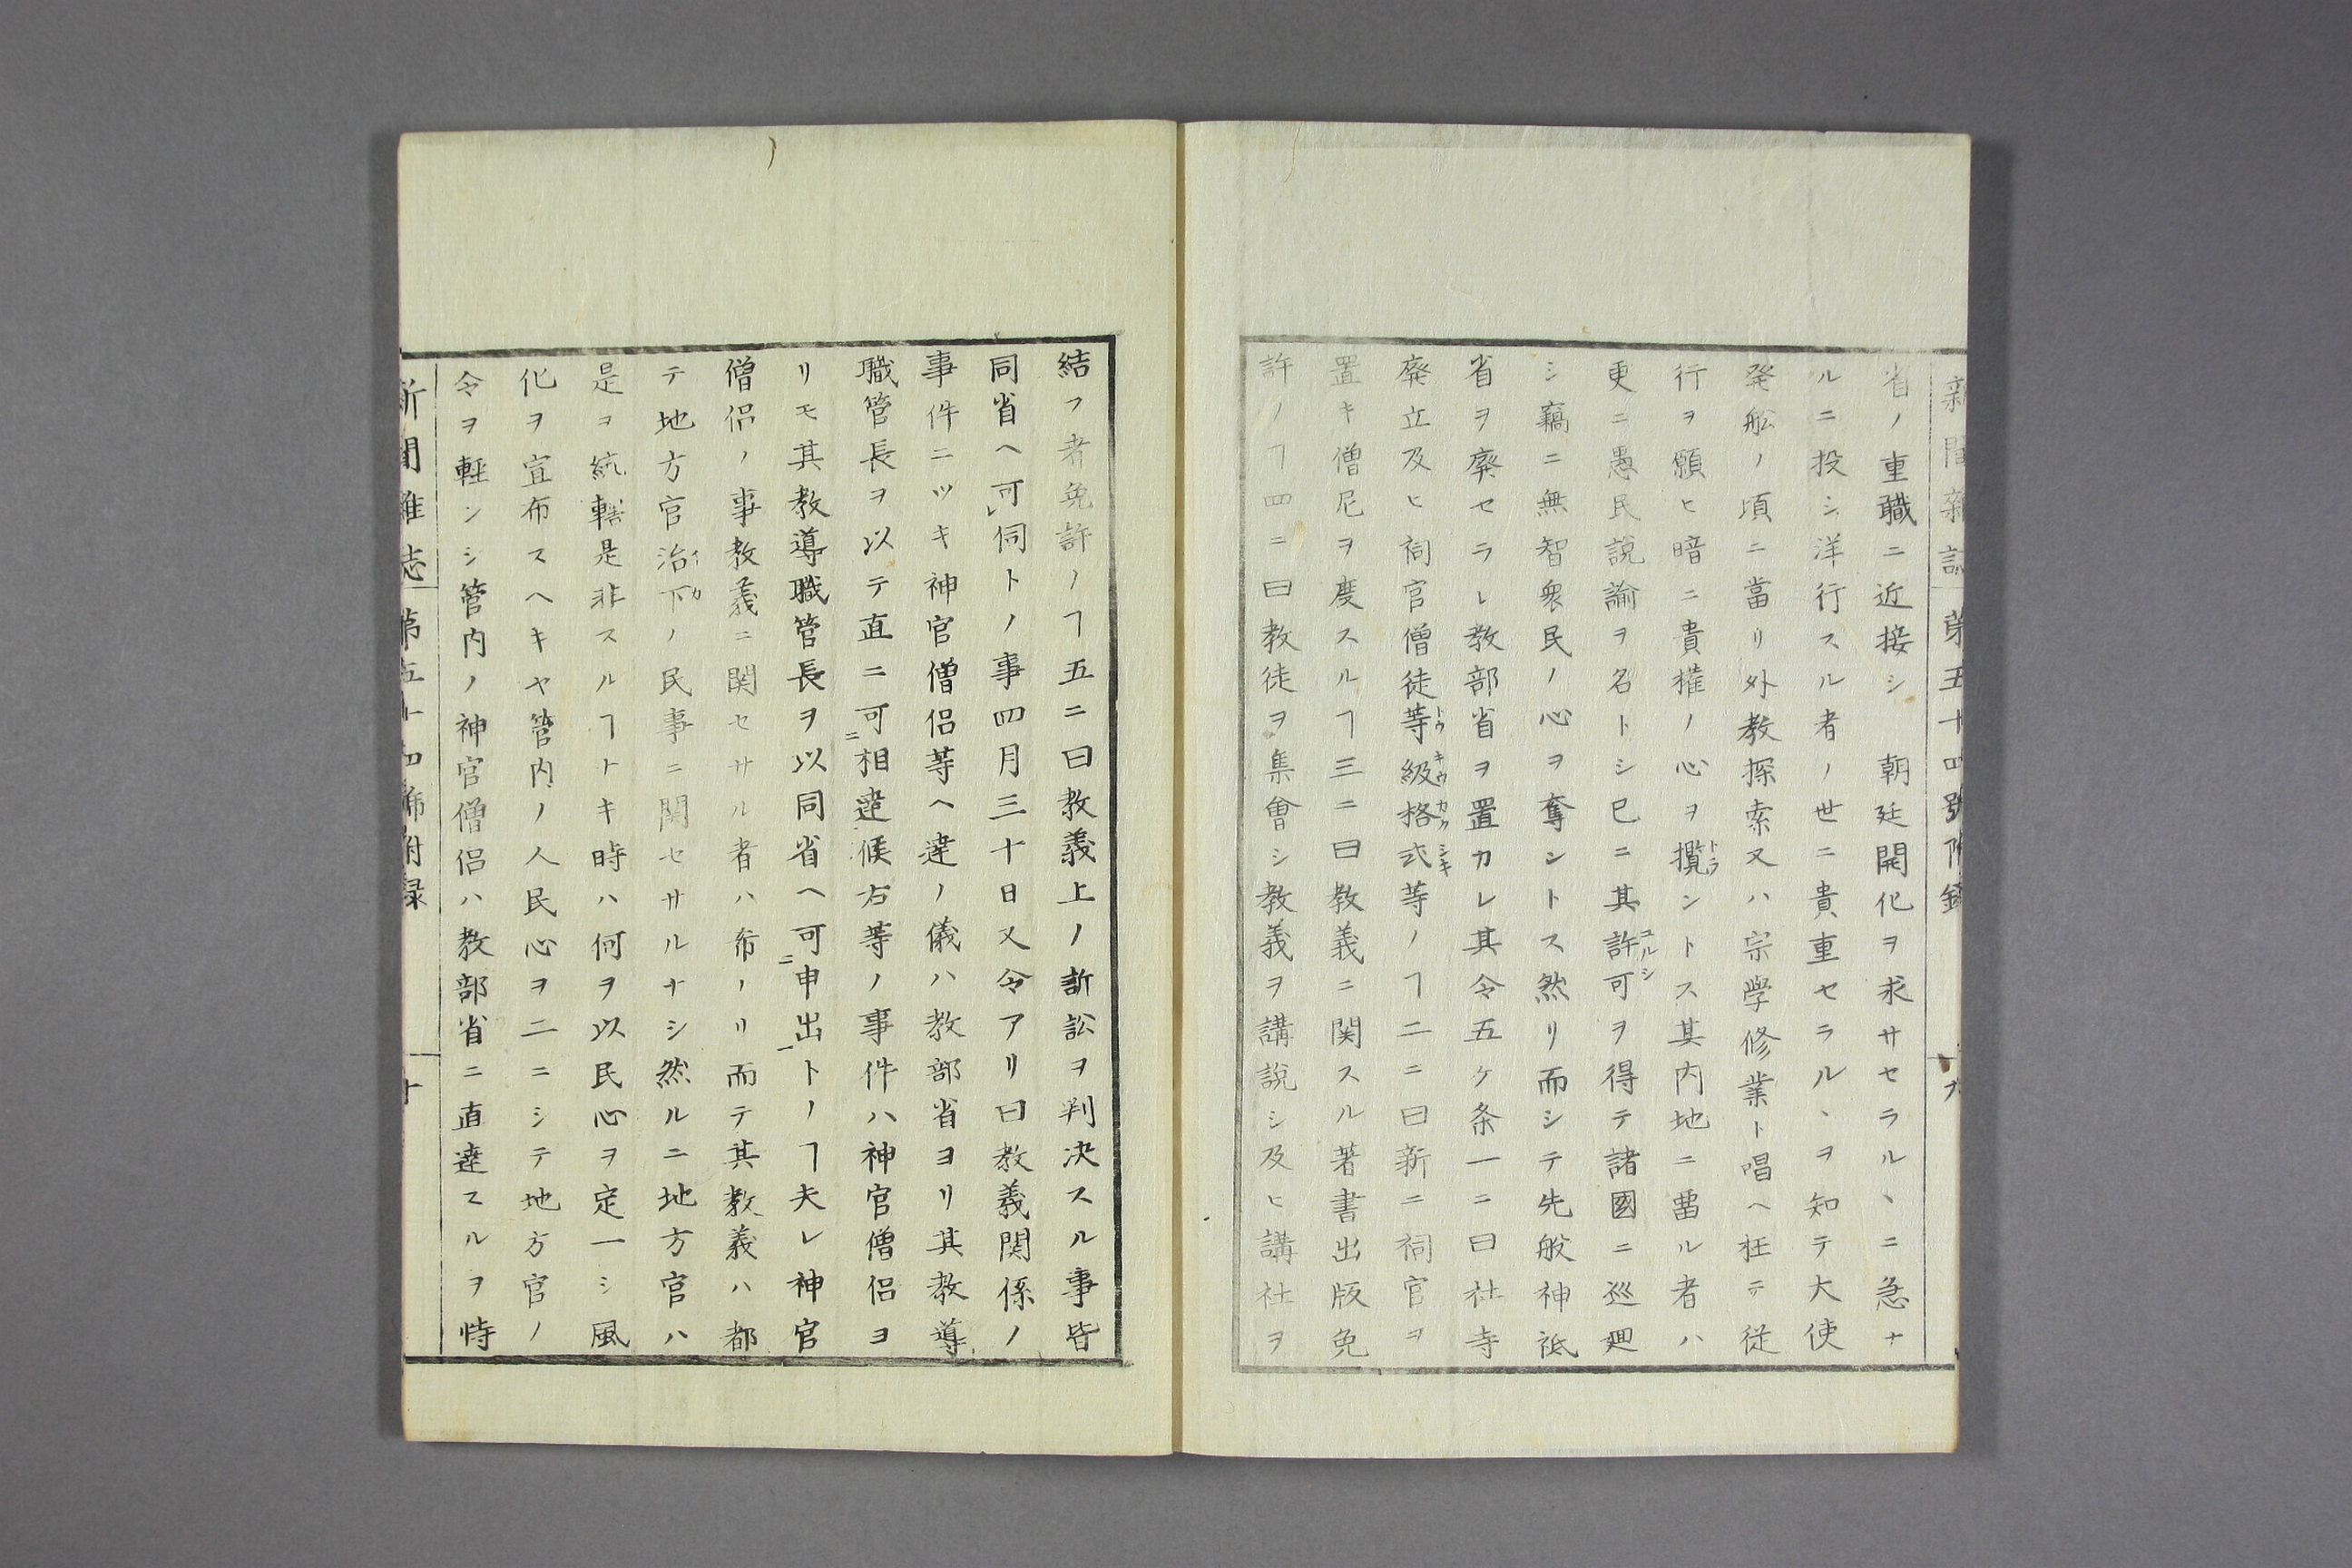 新聞雑誌 第五十四號附錄 九
省ノ重職ニ近接シ 朝廷開化ヲ求サセラルヽニ急ナ
ルニ投シ洋行スル者ノ世ニ貴重セラルヽヲ知テ大使
発舩ノ頃ニ當リ外教探索又ハ宗學修業ト唱ヘ枉テ従
行ヲ願ヒ暗ニ貴權ノ心ヲ攬トラントス其内地ニ畱ル者ハ
更ニ愚民説諭ヲ名トシ已ニ其許可ユルシヲ得テ諸國ニ巡廻
シ竊ニ無智衆民ノ心ヲ奪ントス然リ而シテ先般神祇
省ヲ廃セラレ教部省ヲ置カレ其令五ケ条一ニ曰社寺
廃立及ヒ祠官僧徒等級格式トウキウカクシキ等ノヿ二ニ曰新ニ祠官ヲ
置キ僧尼ヲ度スルヿ三ニ曰教義ニ関スル著書出版免
許ノヿ四ニ曰教徒ヲ集會シ教義ヲ講説シ及ヒ講社ヲ
結フ者免許ノヿ五ニ曰教義上ノ訴訟ヲ判决スル事皆
同省ヘ可レ伺トノ事四月三十日又令アリ曰教義関係ノ
事件ニツキ神官僧侶等ヘ達ノ儀ハ教部省ヨリ其教導
職管長ヲ以テ直ニ可ニ相達候右等ノ事件ハ神官僧侶ヨ
リモ其教導職管長ヲ以同省ヘ可ニ申出一トノヿ夫レ神官
僧侶ノ事教義ニ関セサル者ハ希ノリ而テ其教義ハ都
テ地方官治下イカノ民事ニ関セサルナシ然ルニ地方官ハ
是ヲ統轄是非スルヿトキ時ハ何ヲ以民心ヲ定一シ風
化ヲ宣布スヘキヤ管内ノ人民心ヲ二ニシテ地方官ノ
令ヲ軽ンシ管内ノ神官僧侶ハ教部省ニ直達スルヲ恃
新聞雑誌 第五十四號附録 十